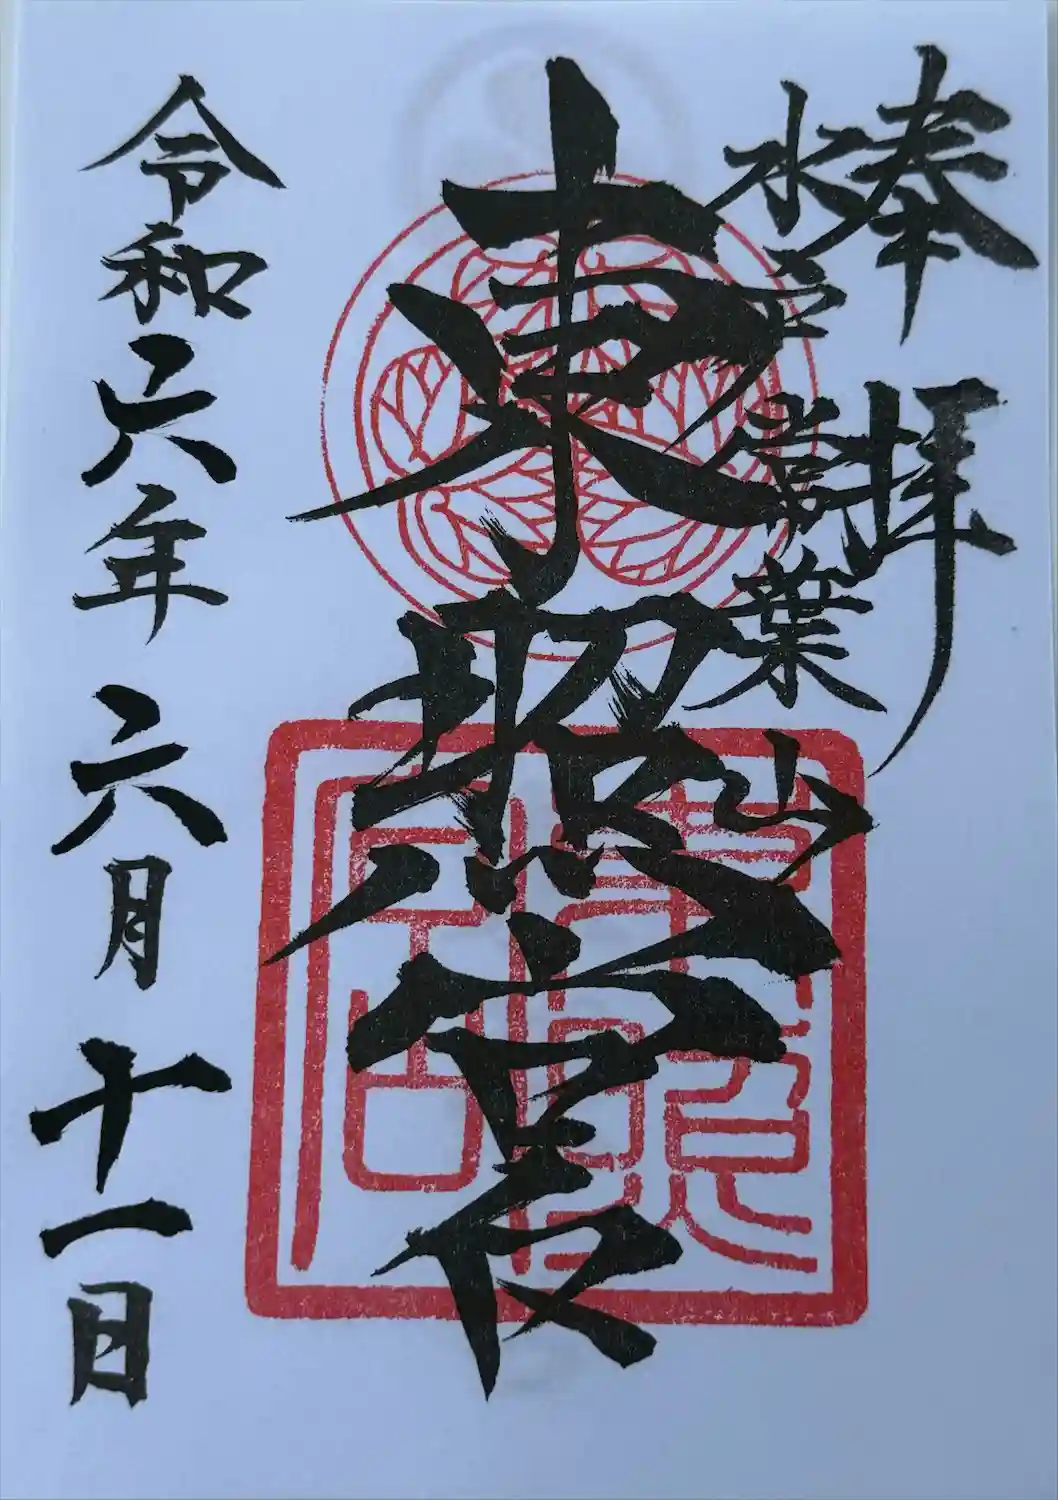 奉拝
水戸常葉山
東照宮
令和六年六月十一日